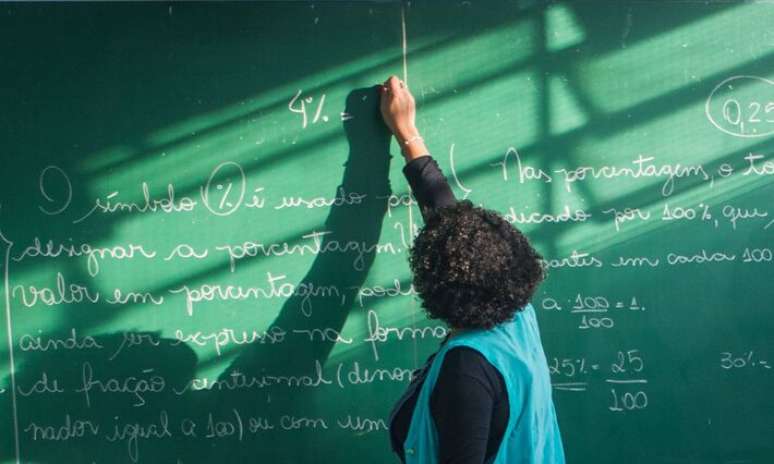 4% =
O símbolo % é usado pa
designar a porcentagem.
valor em porcentagem, pod
ainda ser expresso na forma
de fração centesimal (denomi
nador igual a 100) ou com um
Nas porcentagens, o to
dicado por 100%, que
partes em cada 100
a 100/100 = 1.
25% = 25/100
30% =
0,25